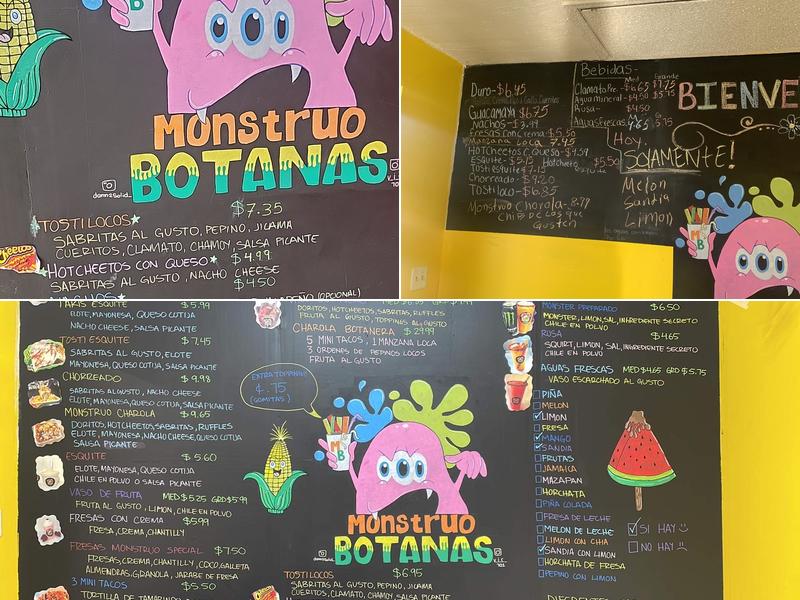 MB
Monstruo
BOTANAS
damn2solid_
$7.35
TOSTILOCOS
SABRITAS AL GUSTO, PEPINO, JICAMA
CUERITOS, CLAMATO, CHAMOY, SALSA PICANTE
HOTCHEETOS CON QUESO $4.99
SABRITAS AL GUSTO, NACHO CHEESE
$4.50
Duro-$6.45
Guacamaya $6.75
Nachos-$3.99
Fresas Con Crema-$5.50
Manzana Loca 7.45
HOTCHeetos C. Queso-$4.59
Esquite-$5.15 Hotcheeto esquite $5.50
Tosti esquite $7.15
Chorreado-$9.20
Tostiloco-$6.85
Monstruo Charola-8.99
Chibocos que
Gusten
Bebidas-
Med Grande
Clamato Pre.-$6.65 $7.75
Agua Mineral-$4.50 $5.75
Rusa-$4.50
Aguas Frescas 4.65 5.75
Hoy.
SOLAMENTE!
Melon
Sandia
Limon
BIENVE
MB
TAKIS ESQUITE $5.99
ELOTE, MAYONESA, QUESO COTIJA
NACHO CHEESE, SALSA PICANTE
TOSTI ESQUITE $7.45
SABRITAS AL GUSTO, ELOTE
MAYONESA, QUESO COTIJA, SALSA PICANTE
CHORREADO $9.98
SABRITAS AL GUSTO, NACHO CHEESE
ELOTE, MAYONESA, QUESO COTIJA, SALSA PICANTE
MONSTRUO CHAROLA $9.65
DORITOS, HOTCHEETOS, SABRITAS, RUFFLES
ELOTE, MAYONESA, NACHO CHEESE, QUESO COTIJA
SALSA PICANTE
ESQUITE $5.60
ELOTE, MAYONESA, QUESO COTIJA
CHILE EN POLVO O SALSA PICANTE
VASO DE FRUTA MED $5.25 GRD $5.99
FRUTA AL GUSTO, LIMON, CHILE EN POLVO
FRESAS CON CREMA $5.99
FRESA, CREMA, CHANTILLY
FRESAS MONSTRUO SPECIAL $7.50
FRESAS, CREMA, CHANTILLY, COCO, GALLETA
ALMENDRAS, GRANOLA, JARABE DE FRESA
3 MINI TACOS $5.50
TORTILLA DE TAMARINDO
DORITOS, HOTCHEETOS, SABRITAS, RUFFLES
FRUTA AL GUSTO, TOPPINGS AL GUSTO
CHAROLA BOTANERA $29.99
5 MINI TACOS, 1 MANZANA LOCA
3 ORDENES DE PEPINOS LOCOS
FRUTA AL GUSTO
EXTRA TOPPING
$.75
(GOMITAS)
MB
Monstruo
BOTANAS
$6.95
TOSTILOCOS
SABRITAS AL GUSTO, PEPINO, JICAMA
CUERITOS, CLAMATO, CHAMOY, SALSA PICANTE
MONSTER PREPARADO $6.50
MONSTER, LIMON, SAL, INGREDIENTE SECRETO
CHILE EN POLVO
RUSA $4.65
SQUIRT, LIMON, SAL, INGREDIENTE SECRETO
CHILE EN POLVO
AGUAS FRESCAS MED $4.65 GRD $5.75
VASO ESCARCHADO AL GUSTO
PIÑA
MELON
LIMON
FRESA
MANGO
SANDIA
FRUTAS
JAMAICA
MAZAPAN
HORCHATA
PIÑA COLADA
FRESA DE LECHE
MELON DE LECHE
LIMON CON CHIA
SANDIA CON LIMON
HORCHATA DE FRESA
PEPINO CON LIMON
SI HAY
NO HAY